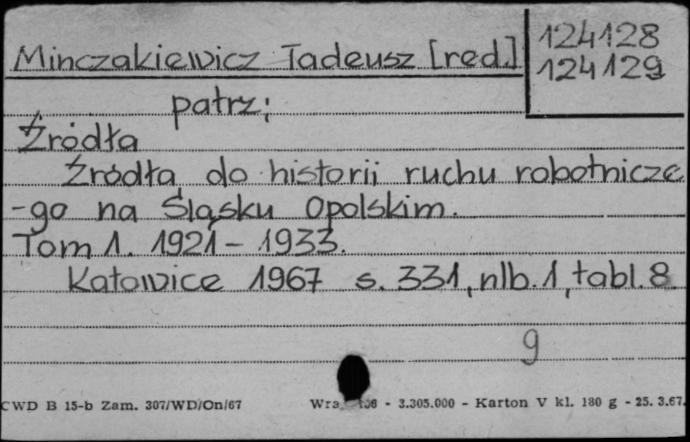 Minczakiewicz Tadeusz [red.]
124128
124129
patrz:
Źródła
Źródła do historii ruchu robotnicze
-go na Śląsku Opolskim.
Tom 1. 1921 - 1933.
Katowice 1967 s. 331, nlb. 1, tabl. 8.
9
CWD B 15-b Zam. 307/WD/On/67
- 3.305.000 - Karton V kl. 180 g - 25. 3.67.